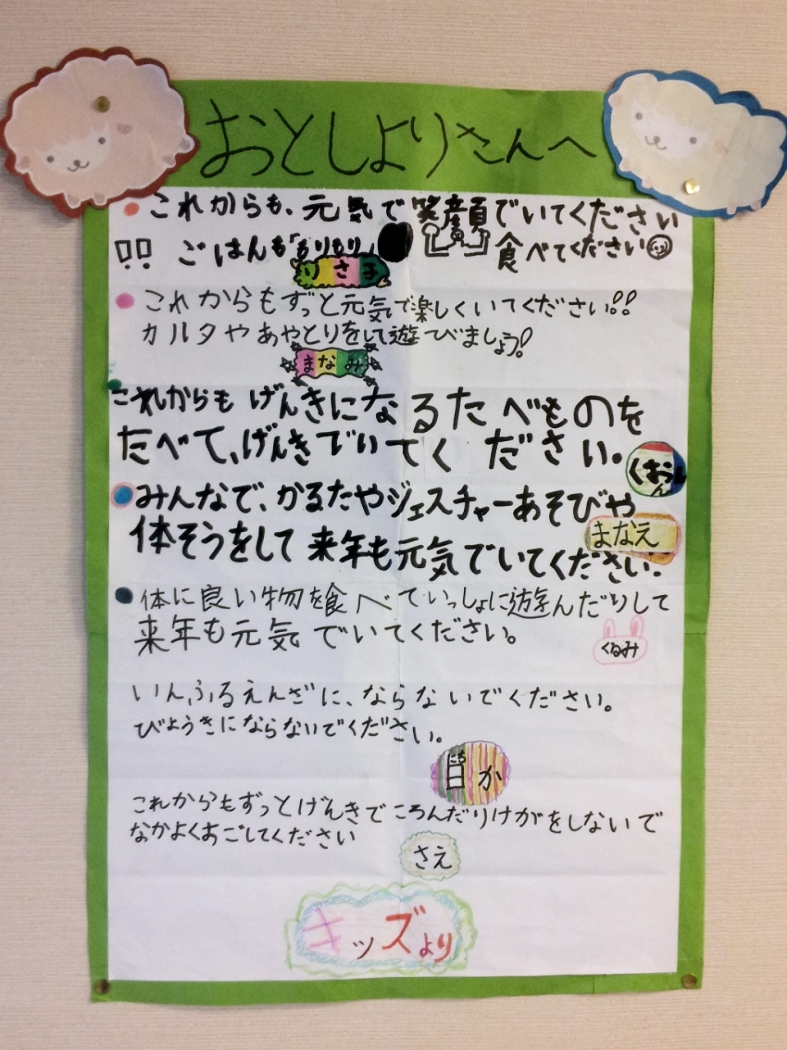 おとしよりさんへ
これからも、元気で笑顔でいてください
!! ごはんも「もりもり」食べてください
りさ子
これからもずっと元気で楽しくいてください!!
カルタやあやとりをして遊びましょう!
まなみ
これからも げんきになるたべものを
たべて、げんきでいてください。
くおん
みんなで、かるたやジェスチャーあそびや
体そうをして来年も元気でいてください。
まなえ
体に良い物を食べていっしょに遊んだりして
来年も元気でいてください。
くるみ
いんふるえんざに、ならないでください。
びょうきにならないでください。
これからもずっとげんきでころんだりけがをしないで
なかよくすごしてください
さえ
キッズより